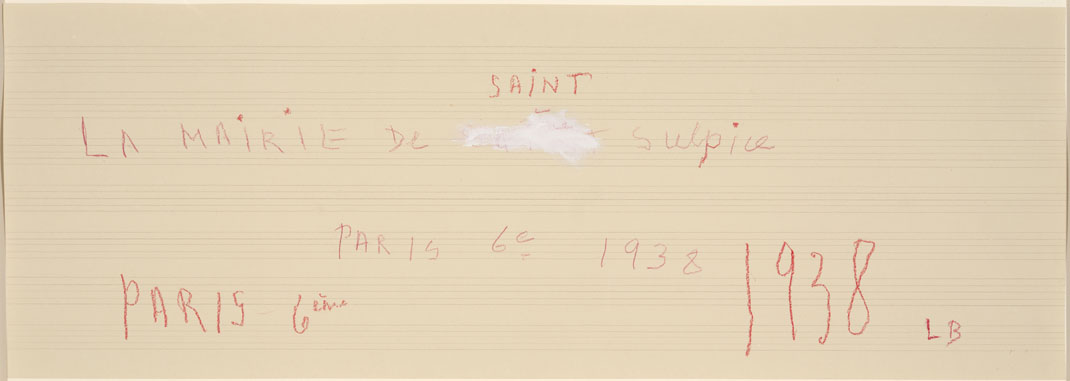 SAINT
LA MAIRIE De Sulpice
PARIS 6e 1938
1938
PARIS 6ème
LB